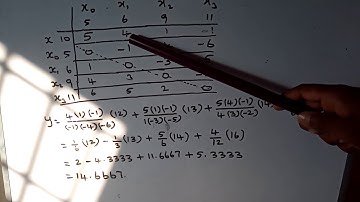 x₀ x₁ x₂ x₃
5 6 9 11
x 10 5 4 1 -1
x₀ 5 0 -1 -6
x₁ 6 1 0
4 3 0
x₃ 11 6 5 2 0
y = 4(1)(-1)/(-1)(-4)(-6) (12) + 5(1)(-1)/1(-3)(-5) (13) + 5(4)(-1)/4(3)(-2) (14
= 1/6 (12) - 1/3 (13) + 5/6 (14) + 4/12 (16)
= 2 - 4.3333 + 11.6667 + 5.3333
= 14.6667.